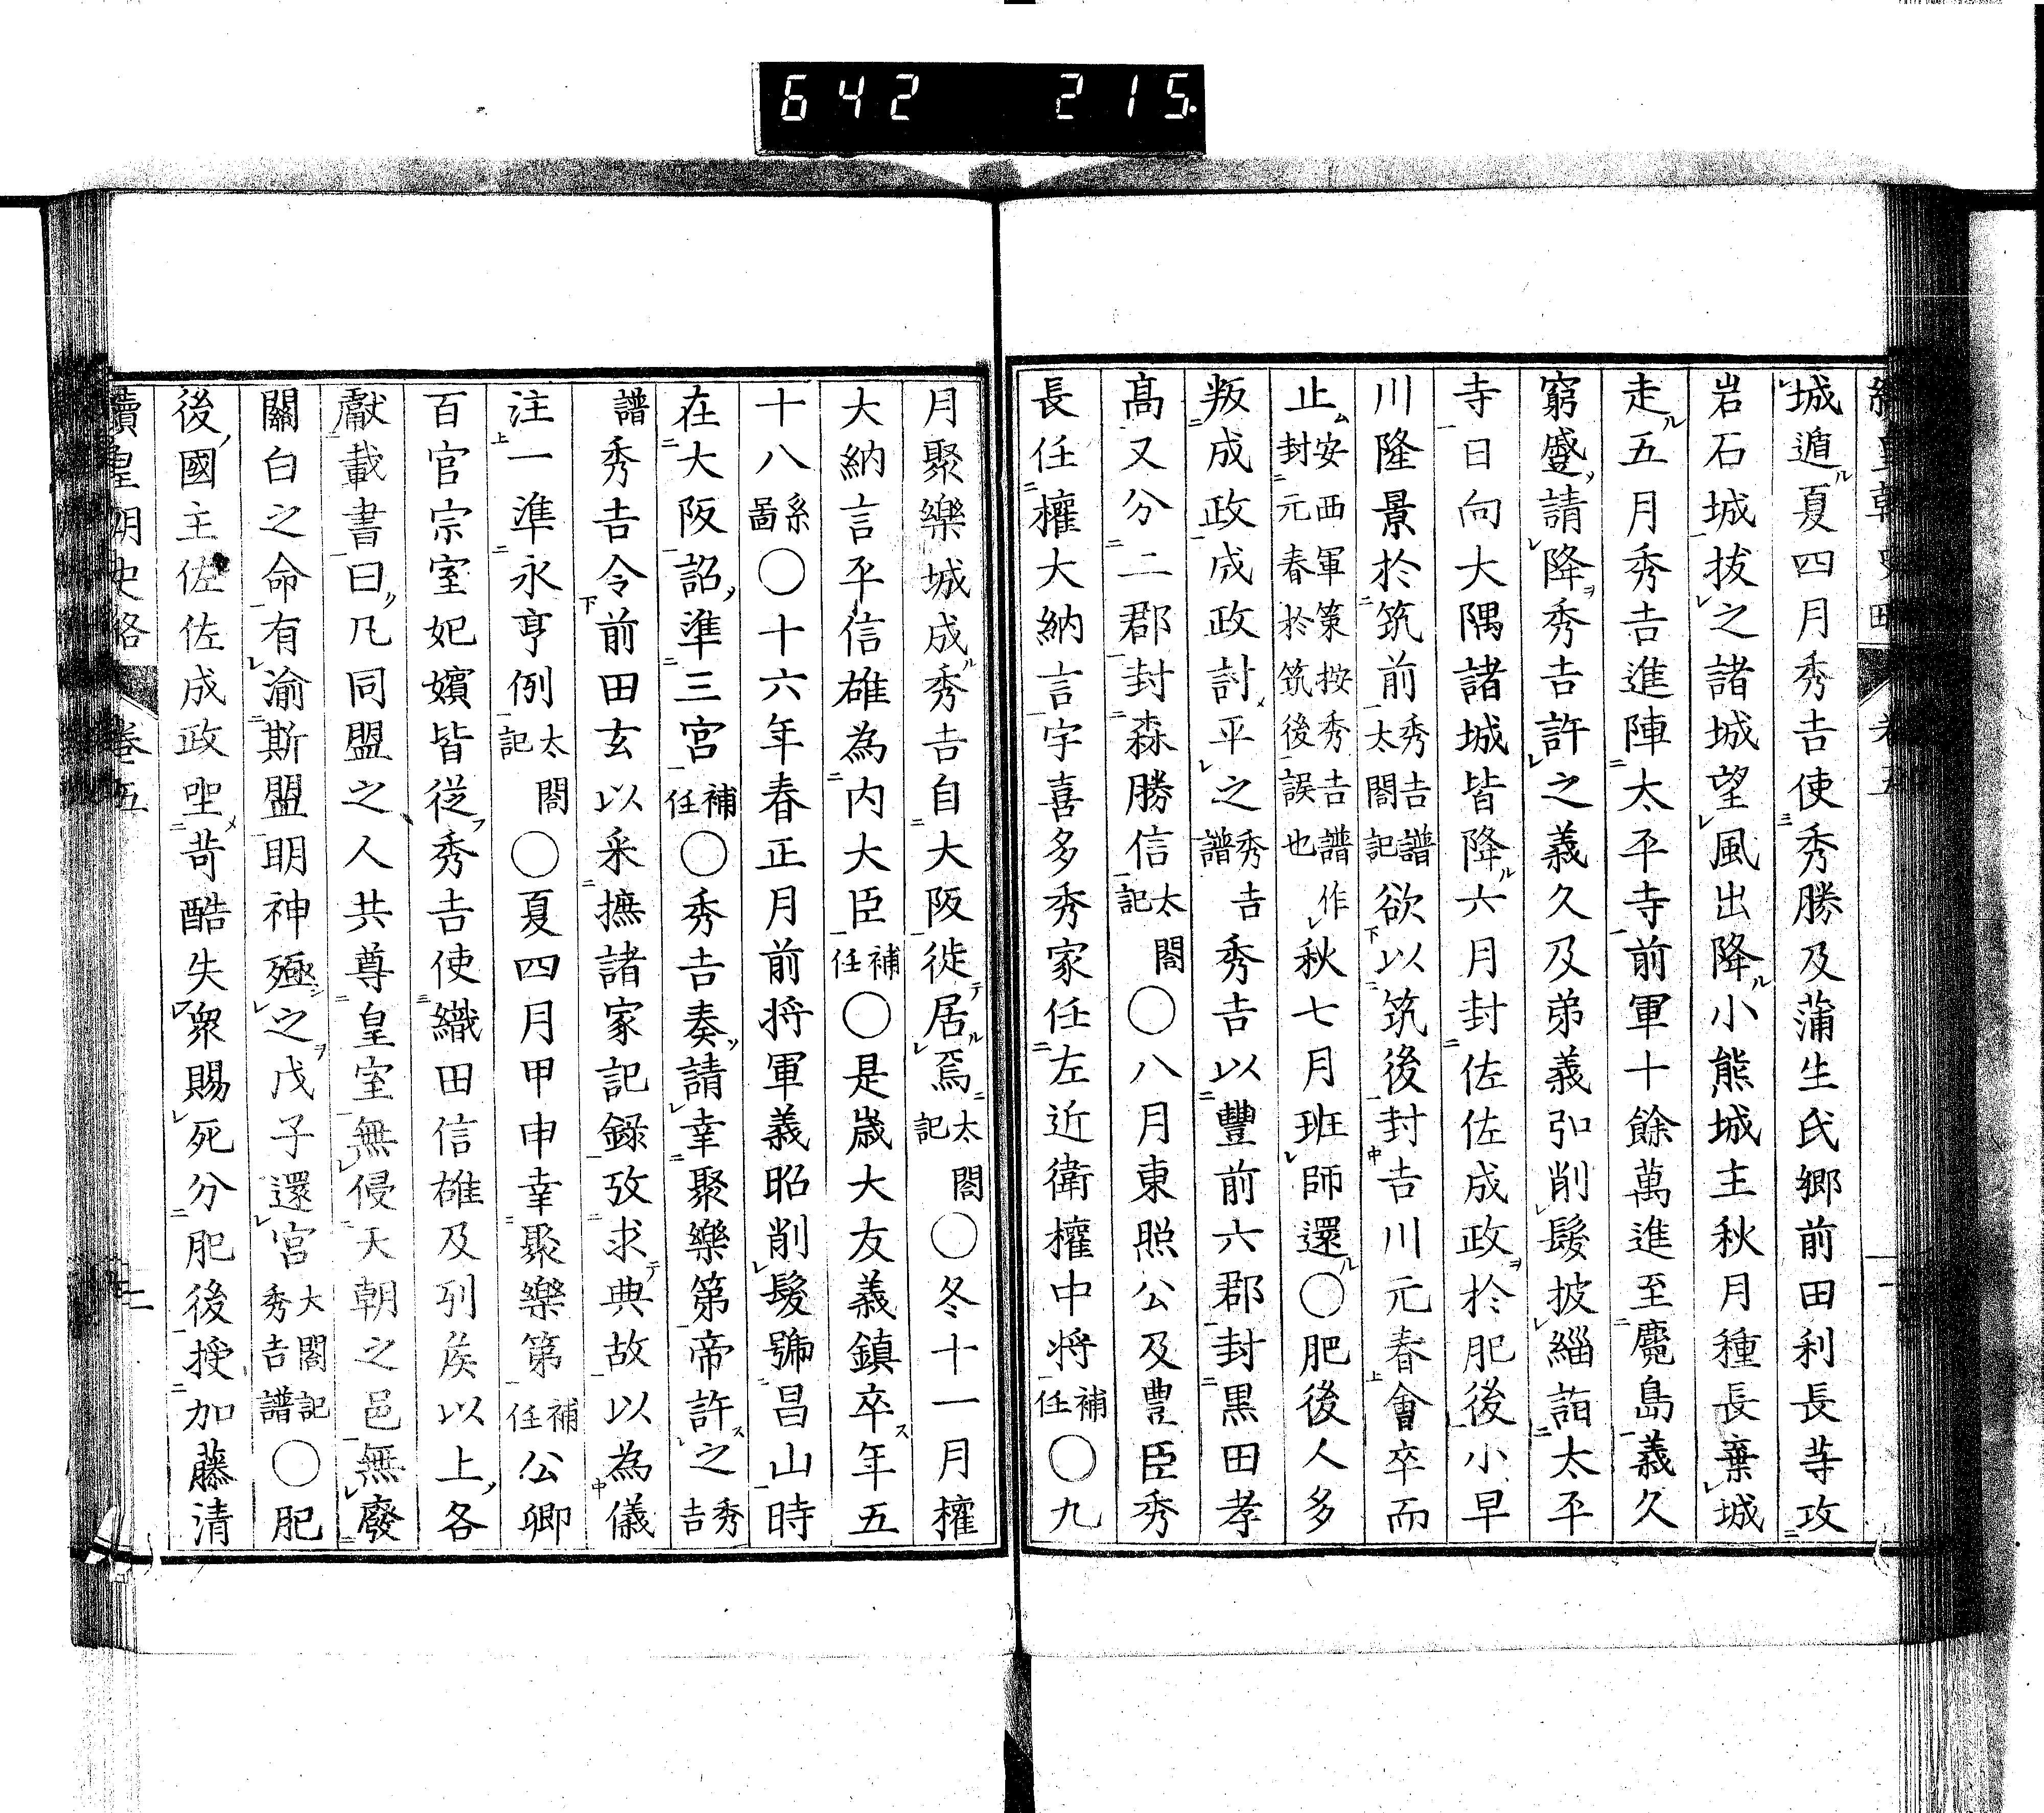 642 215
城遁夏四月秀吉使秀勝及蒲生氏鄉前田利長等攻
岩石城拔之諸城望風出降小熊城主秋月種長棄城
走五月秀吉進陣太平寺前軍十餘萬進至麑島義久
窮蹙請降秀吉許之義久及弟義弘削髮披緇詣太平
寺日向大隅諸城皆降六月封佐佐成政於肥後小早
川隆景於筑前秀吉譜太閤記欲以筑後封吉川元春會卒而
止安西軍策按秀吉譜作封元春於筑後誤也秋七月班師還〇肥後人多
叛成政成政討平之秀吉譜秀吉以豐前六郡封黑田孝
高又分二郡封森勝信太閤記〇八月東照公及豊臣秀
長任權大納言宇喜多秀家任左近衛權中將補任〇九
月聚樂城成秀吉自大阪徙居焉太閤記〇冬十一月權
大納言平信雄為內大臣補任〇是歲大友義鎮卒年五
十八系圖〇十六年春正月前將軍義昭削髮號昌山時
在大阪詔準三宮補任〇秀吉奏請幸聚樂第帝許之秀吉
譜秀吉令前田玄以采摭諸家記錄攷求典故以為儀
注一準永亨例太閤記〇夏四月甲申幸聚樂第補任公卿
百官宗室妃嬪皆從秀吉使織田信雄及列侯以上各
獻載書曰凡同盟之人共尊皇室無侵天朝之邑無廢
關白之命有渝斯盟明神殛之戊子還宮太閤記秀吉譜〇肥
後國主佐佐成政坐苛酷失衆賜死分肥後授加藤清
續皇朝史略 卷五 二